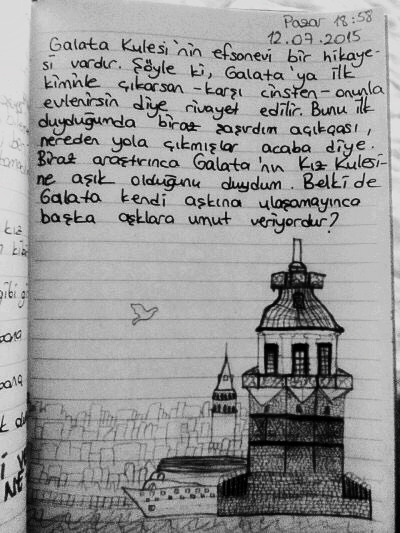 Pazar 18:58
12.07.2015
Galata Kulesi'nin efsonevi bir hikaye-
si vardır. Şöyle ki, Galata'ya ilk
kiminle çıkarsan -karşı cinsten- onunla
evlenirsin diye rivayet edilir. Bunu ilk
duyduğumda biraz şaşırdım açıkçası,
nereden yola çıkmışlar acaba diye.
Biraz araştırınca Galata'nın Kız Kulesi-
ne aşık olduğunu duydum. Belki de
Galata kendi aşkına ulaşamayınca
başka aşklara umut veriyordur?